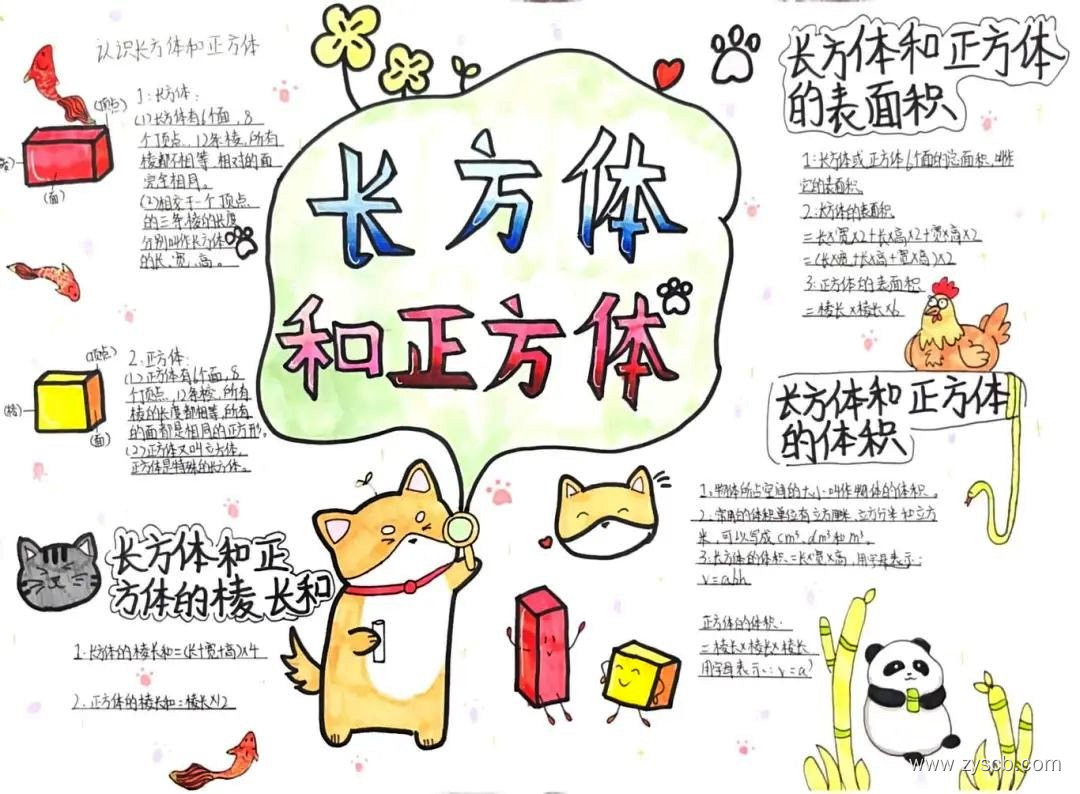 认识长方体和正方体
(顶点)
(面)
1:长方体:
(1)长方体有6个面,8
个顶点,12条棱,所有
棱都不相等,相对的面
完全相同。
(2)相交于一个顶点
的三条棱的长度
分别叫作长方体
的长、宽、高。
(顶点)
(棱)
(面)
2.正方体:
(1)正方体有6个面,8
个顶点,12条棱,所有
棱的长度都相等,所有
的面都是相同的正方形。
(2)正方体又叫立方体,
正方体是特殊的长方体。
长方体和正
方体的棱长和
1.长方体的棱长和=(长+宽+高)×4
2.正方体的棱长和=棱长×12
长方体
和正方体
长方体和正方体
的表面积
1:长方体或正方体6个面的总面积,叫作
它的表面积
2:长方体的表面积
=长×宽×2+长×高×2+宽×高×2
=(长×宽+长×高+宽×高)×2
3:正方体的表面积
=棱长×棱长×6
长方体和正方体
的体积
1:物体所占空间的大小叫作物体的体积。
2:常用的体积单位有立方厘米,立方分米和立方
米,可以写成cm³、dm³和m³。
3:长方体的体积=长×宽×高,用字母表示:
V=abh
正方体的体积:
=棱长×棱长×棱长
用字母表示:V=a³
www.zyscb.com